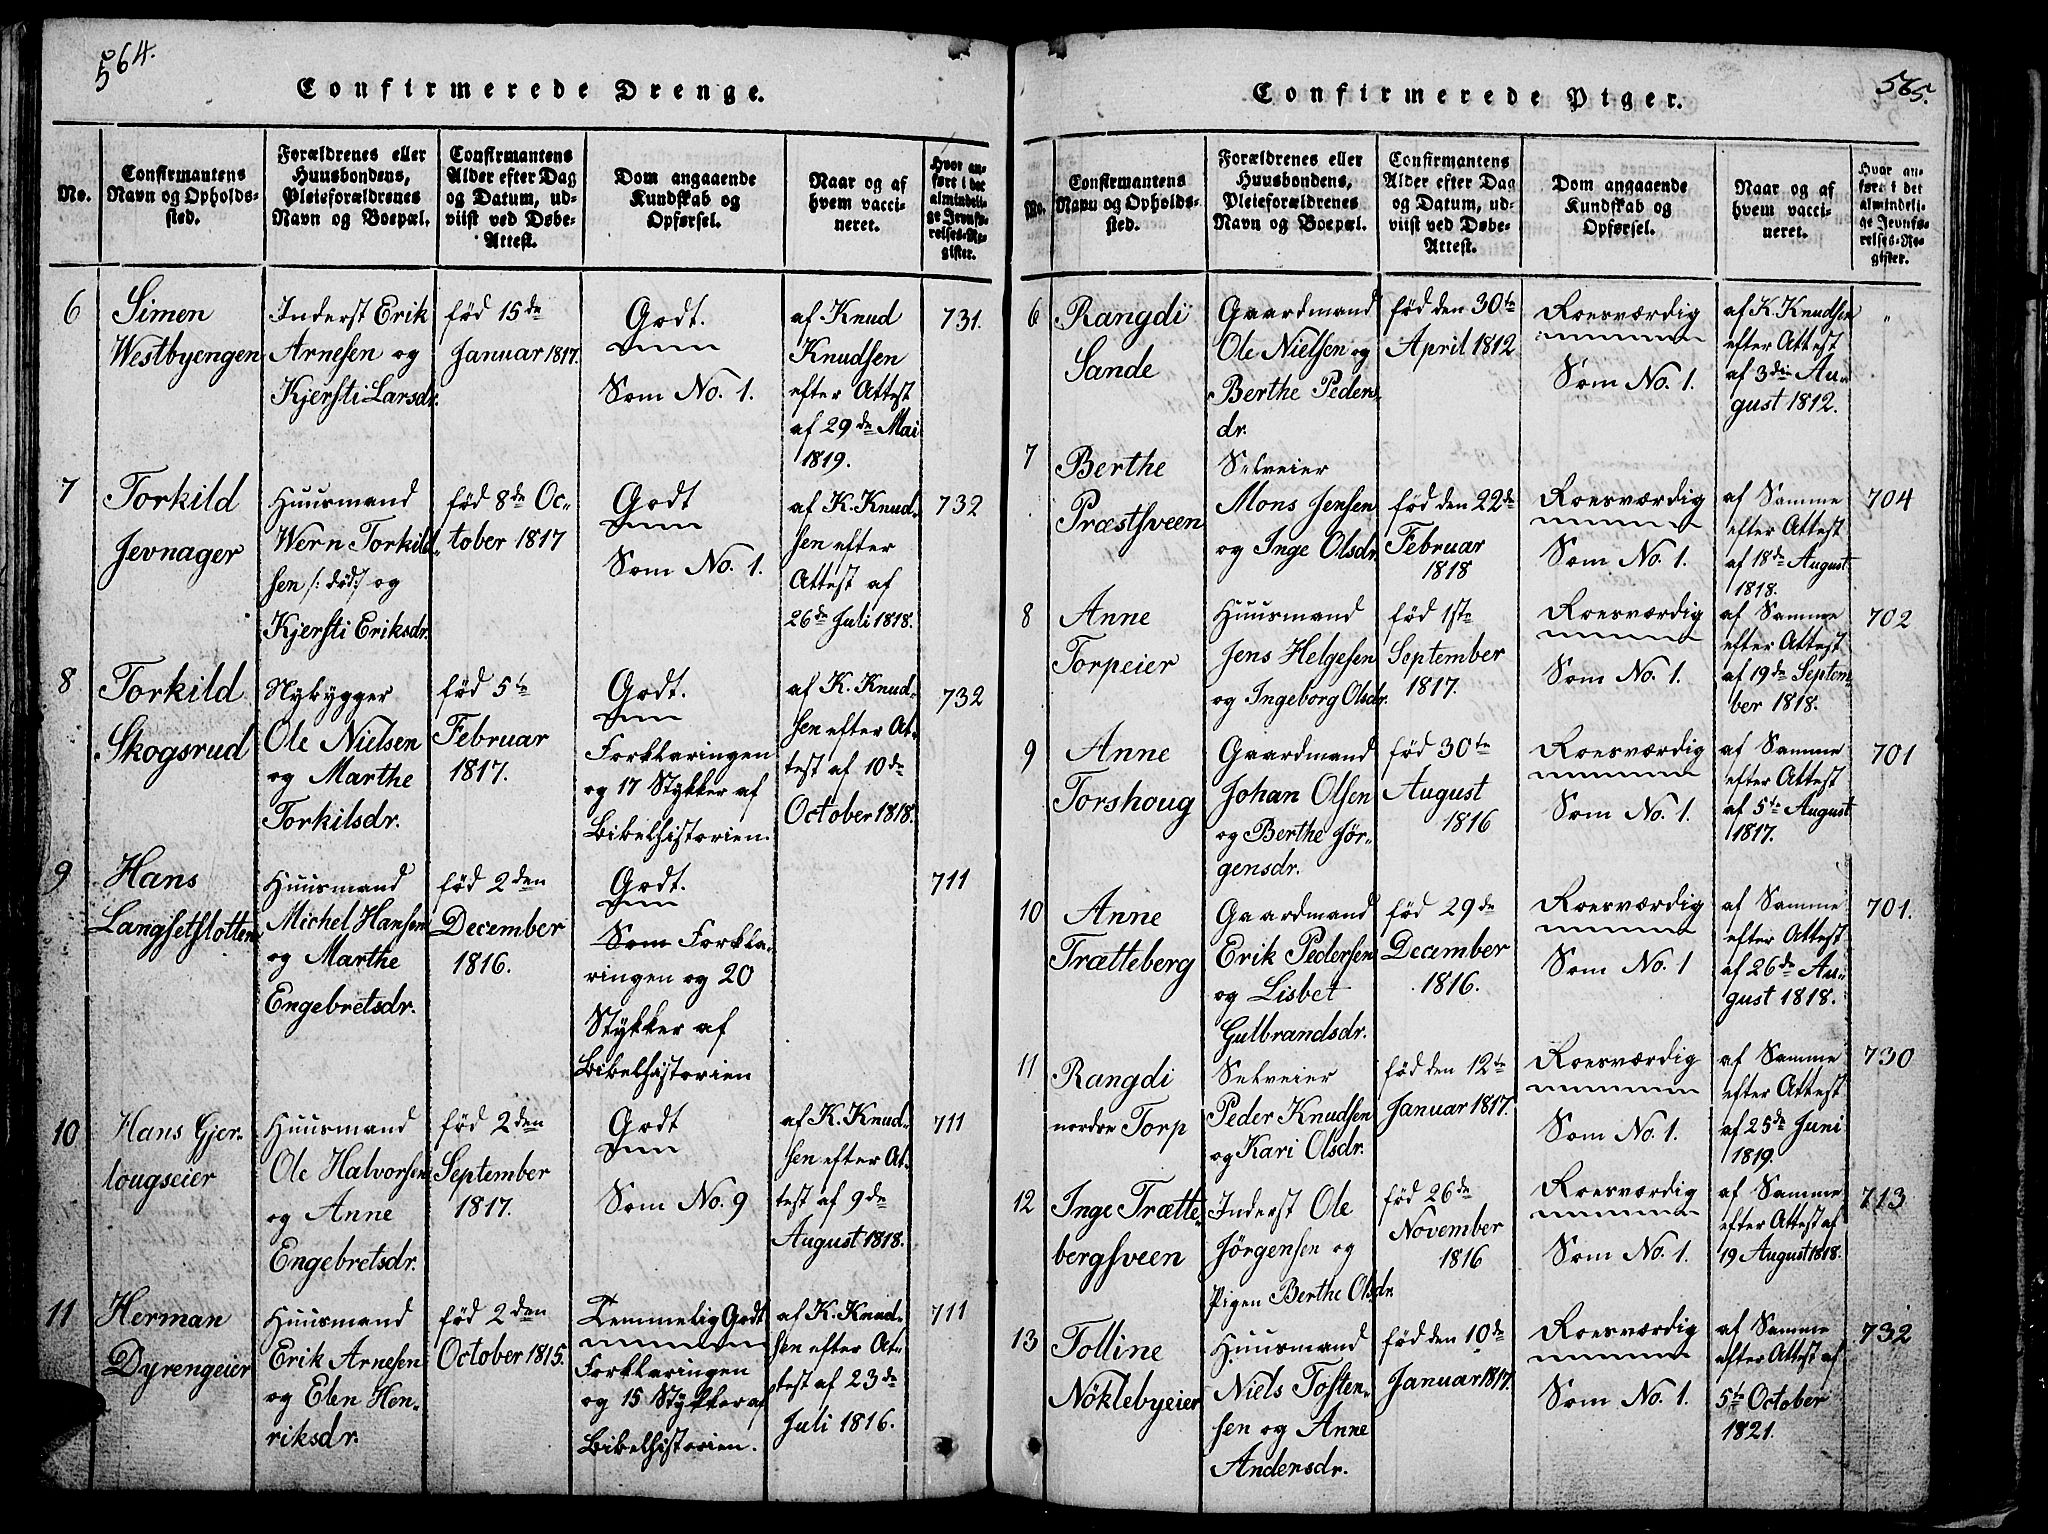 564.
Confirmerede Drenge.
No.
Confirmantens
Navn og Opholds-
sted.
Forældrenes eller
Huusbondens,
Pleieforældrenes
Navn og Boepæl.
Confirmantens
Alder efter Dag
og Datum, ud-
viist ved Døbe-
Attest.
Dom angaaende
Kundskab og
Opførsel.
Naar og af
hvem vacci-
neret.
Hvor an-
ført i det
almindeli-
ge Jevnfø-
relses-Re-
gister.
6
Simen
Westbyengen
Inderst Erik
Arnesen og
Kjersti Larsdr.
fød 15de
Januar 1817.
Godt.
Som No. 1.
af Knud
Knudsen
efter Attest
af 29de Mai
1819.
731.
7
Torkild
Jevnager
Huusmand
Wern Torkild-
sen /: død:/ og
Kjersti Eriksdr.
fød 8de Oc-
tober 1817
Godt
Som No. 1.
af K. Knud-
sen efter
Attest af
26de Juli 1818.
732
8
Torkild
Skogsrud
Nybygger
Ole Nielsen
og Marthe
Torkilsdr.
fød 5te
Februar
1817.
Godt.
Forklaringen
og 17 Stykker af
Bibelhistorien.
af K. Knud-
sen efter At-
test af 10de
October 1818.
732
9
Hans
Langsetslotten
Huusmand
Michel Hansen
og Marthe
Engebretsdr.
fød 2den
December
1816.
Godt.
Som Forkla-
ringen og 20
Stykker af
Bibelhistorien
711
10
Hans Gjer-
lougseier
Huusmand
Ole Halvorsen
og Anne
Engebretsdr.
fød 2den
September
1817.
Godt
Som No. 9
af K. Knud-
sen efter At-
test af 9de
August 1818.
711
11
Herman
Dyrengeier
Huusmand
Erik Arnesen
og Elen Hen-
riksdr.
fød 2den
October 1815.
Temmelig Godt
Forklaringen
og 15 Stykker af
Bibelhistorien.
af K. Knud-
sen efter At-
test af 23de
Juli 1816.
711
565.
Confirmerede Piger.
No.
Confirmantens
Navn og Opholds-
sted.
Forældrenes eller
Huusbondens,
Pleieforældrenes
Navn og Boepæl.
Confirmantens
Alder efter Dag
og Datum, ud-
viist ved Døbe-
Attest.
Dom angaaende
Kundskab og
Opførsel.
Naar og af
hvem vacci-
neret.
Hvor an-
ført i det
almindeli-
ge Jevnfø-
relses-Re-
gister.
6
Rangdi
Sande
Gaardmand
Ole Nielsen og
Berthe Peders-
dr.
fød den 30te
April 1812
Roesværdig
Som No. 1.
af K. Knudsen
efter Attest
af 3die Au-
gust 1812.
"
7
Berthe
Præstsveen
Selveier
Mons Jensen
og Inge Olsdr.
fød den 22de
Februar
1818
Roesværdig
Som No. 1.
af Samme
efter Attest
af 18de August
1818.
704
8
Anne
Torpeier
Huusmand
Jens Helgesen
og Ingeborg Olsdr.
fød 1ste
September
1817.
Roesværdig
Som No. 1.
af Samme
efter Attest
af 19de Septem-
ber 1818.
702
9
Anne
Torshoug
Gaardmand
Johan Olsen
og Berthe Jør-
gensdr.
fød 30te
August
1816
Roesværdig
Som No. 1.
af Samme
efter Attest
af 5te August
1817.
701
10
Anne
Trætteberg
Gaardmand
Erik Pedersen
og Lisbet
Gulbrandsdr.
fød 29de
December
1816.
Roesværdig
Som No. 1
af Samme
efter Attest
af 26de Au-
gust 1818.
701.
11
Rangdi
nordre Torp
Selveier
Peder Knudsen
og Kari Olsdr.
fød den 12te
Januar 1817.
Roesværdig
Som No. 1.
af Samme
efter Attest
af 25de Juni
1819.
730
12
Inge Trætte-
bergsveen
Inderst Ole
Jörgensen og
Pigen Berthe Olsdr
fød 26de
November
1816
Roesværdig
Som No. 1.
af Samme
efter Attest af
19 August 1818.
713
13
Tolline
Nöklebyeier
Huusmand
Niels Tosten-
sen og Anne
Andersdr.
fød den 10de
Januar 1817.
Roesværdig
Som No. 1.
af Samme
efter Attest af
5te October
1821.
732